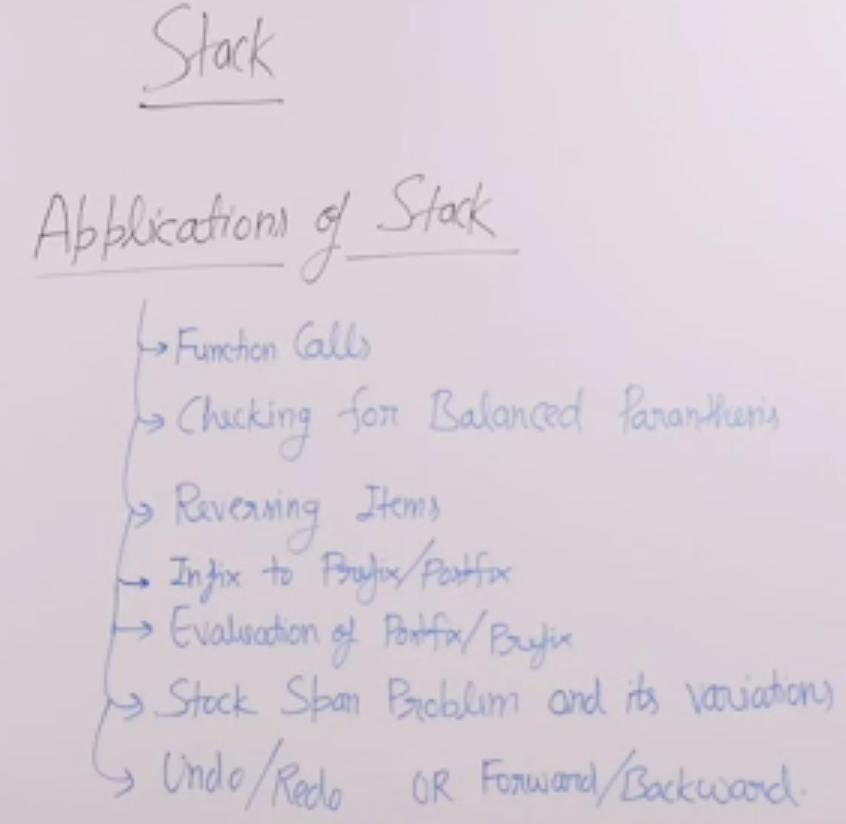 Stack
Applications of Stack
Function Calls
Checking for Balanced Paranthesis
Reversing Items
Infix to Prefix/Postfix
Evaluation of Postfix/Prefix
Stock Span Problem and its variations
Undo/Redo OR Forward/Backward.